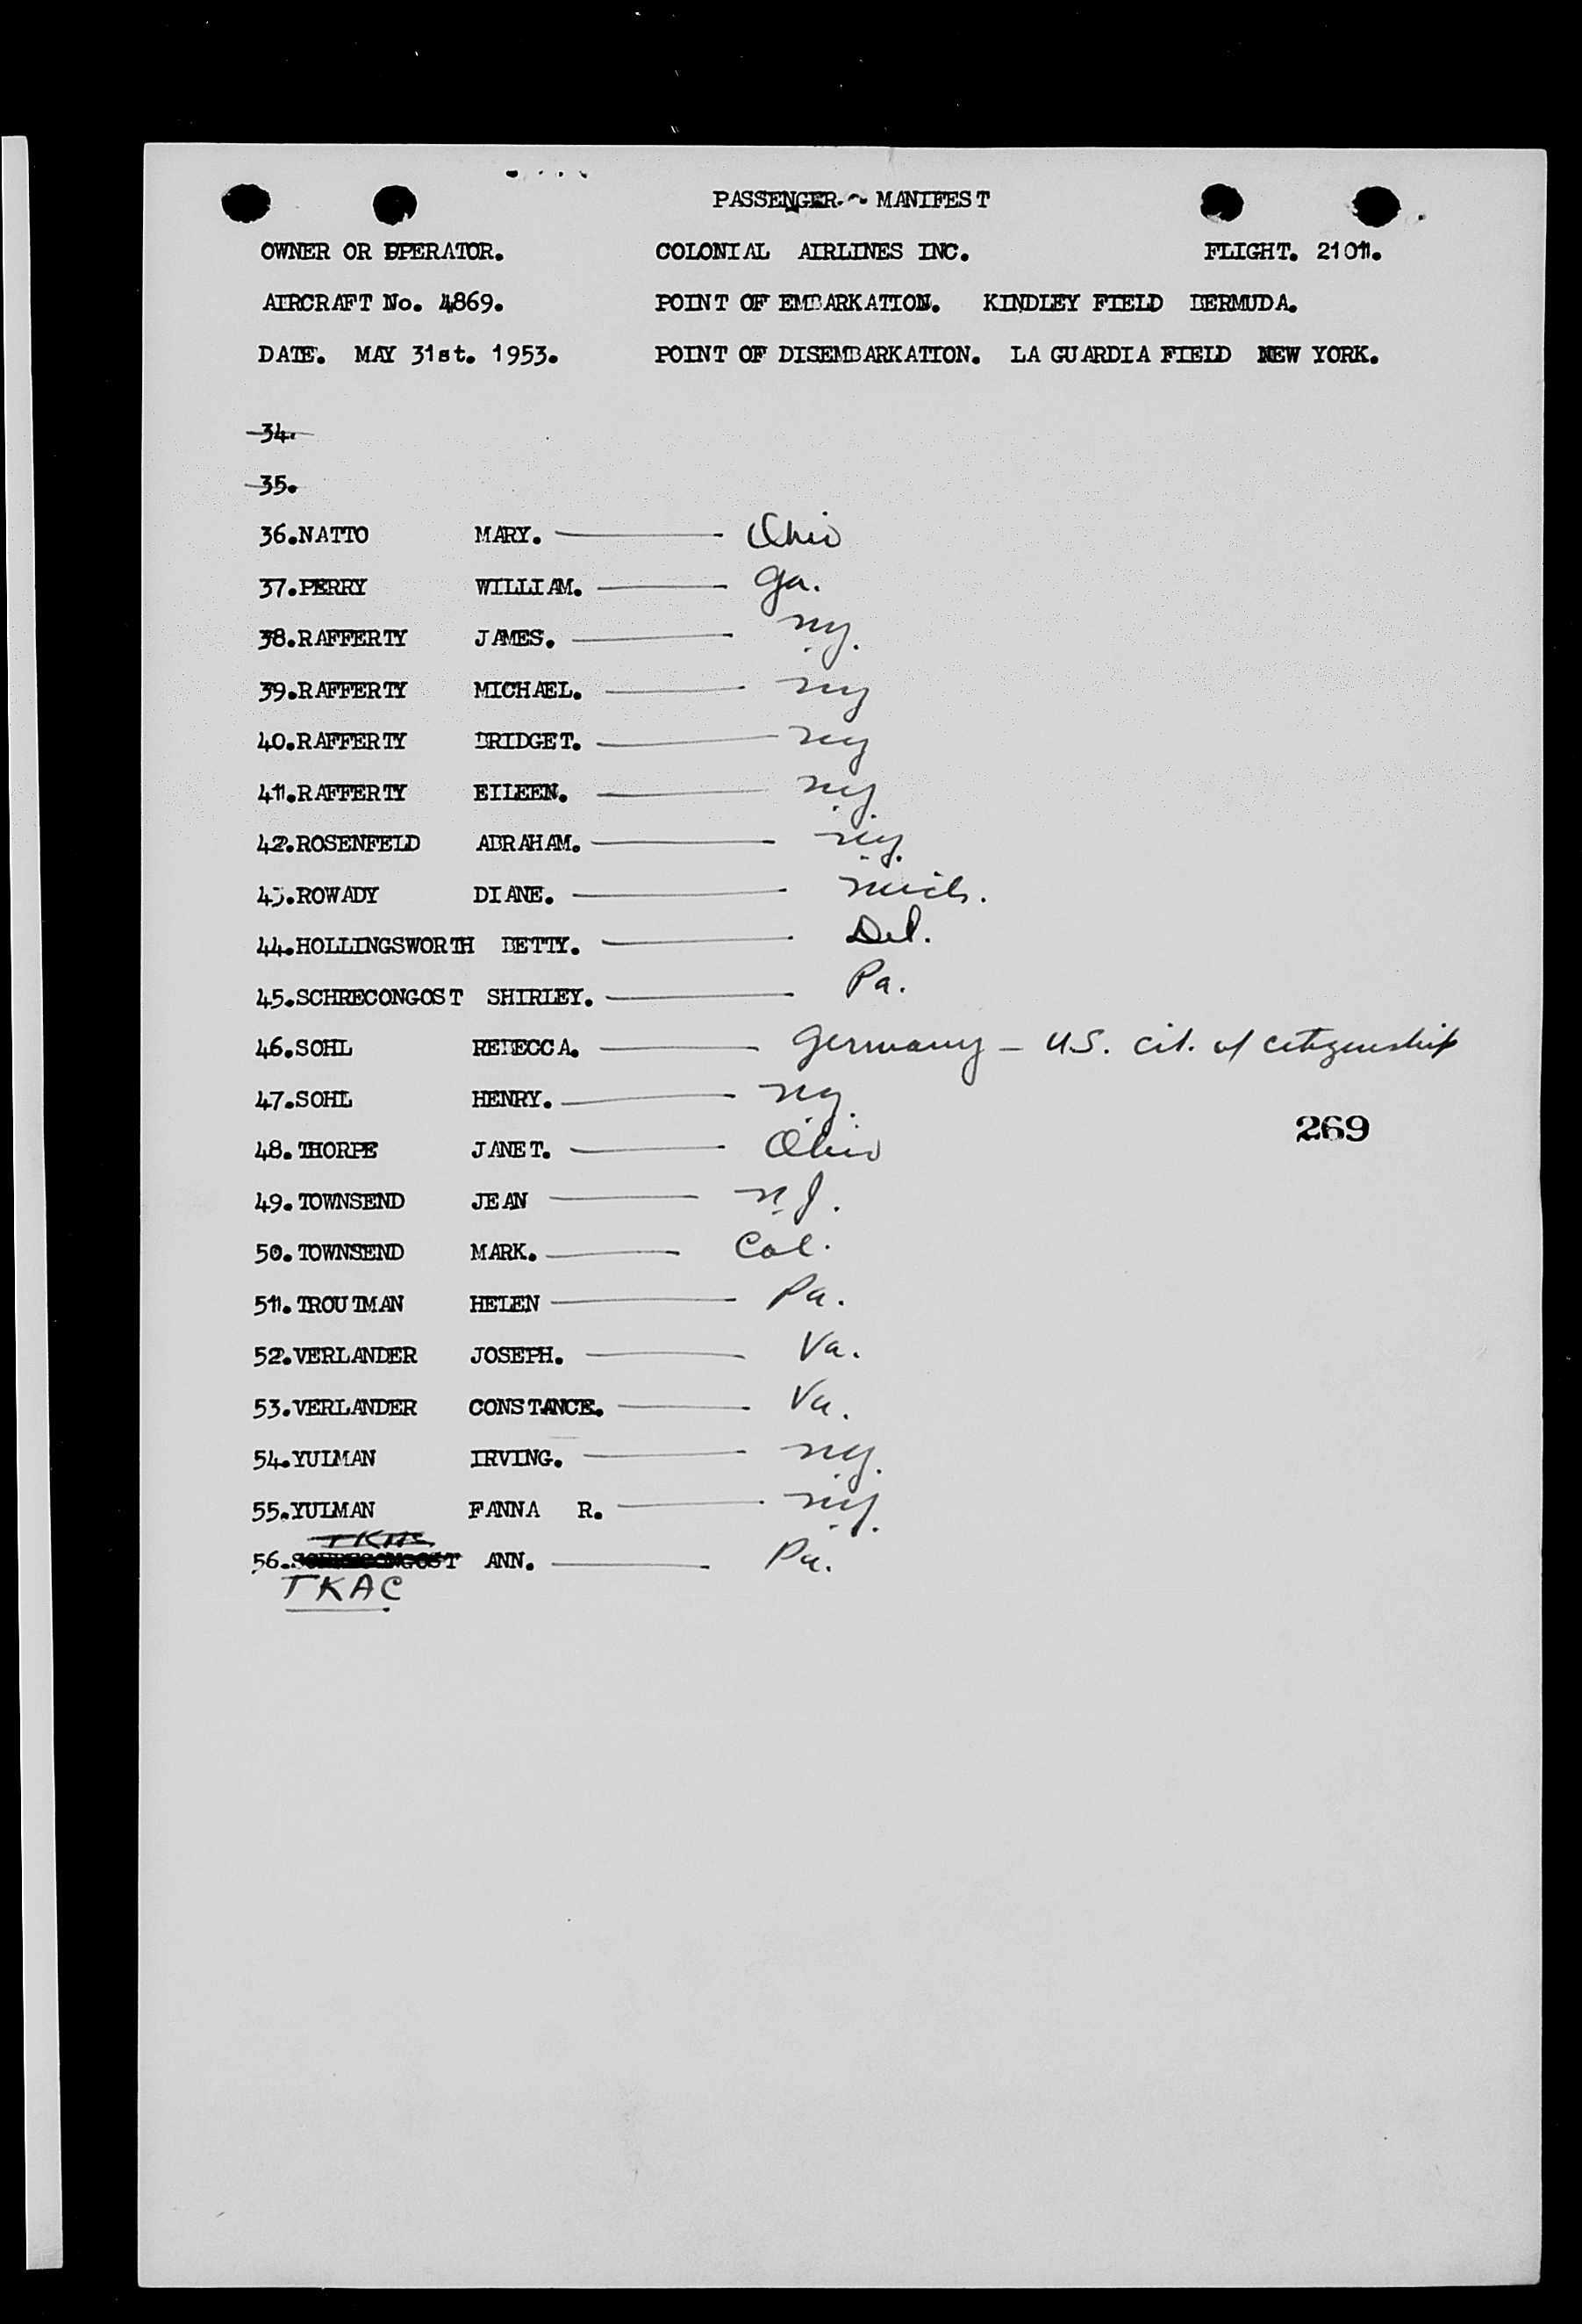 PASSENGER - MANIFEST
OWNER OR OPERATOR. COLONIAL AIRLINES INC. FLIGHT. 2101.
AIRCRAFT No. 4869. POINT OF EMBARKATION. KINDLEY FIELD BERMUDA.
DATE. MAY 31st. 1953. POINT OF DISEMBARKATION. LA GUARDIA FIELD NEW YORK.
34.
35.
36.NATTO MARY. Ohio
37.PERRY WILLIAM. Ga.
38.RAFFERTY JAMES. NY.
39.RAFFERTY MICHAEL. NY
40.RAFFERTY BRIDGET. NY
41.RAFFERTY EILEEN. NY.
42.ROSENFELD ABRAHAM. NY.
43.ROWADY DIANE. Mich.
44.HOLLINGSWORTH BETTY. Del.
45.SCHRECONGOST SHIRLEY. Pa.
46.SOHL REBECCA. Germany - U.S. cit. of citizenship
47.SOHL HENRY. NY.
269
48. THORPE JANET. Ohio
49. TOWNSEND JEAN N.J.
50. TOWNSEND MARK. Cal.
51. TROUTMAN HELEN Pa.
52.VERLANDER JOSEPH. Va.
53.VERLANDER CONSTANCE. Va.
54.YULMAN IRVING. NY.
55.YULMAN FANNA R. NY.
56.SCHRECONGOST ANN. Pa.
TKAC